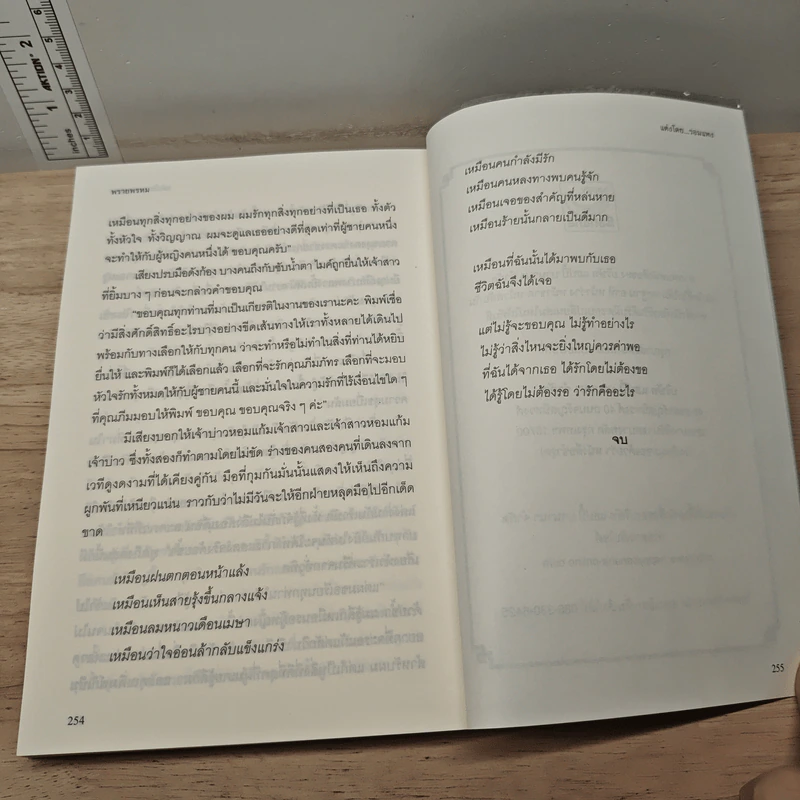 พรายพรหม
เหมือนทุกสิ่งทุกอย่างของผม ผมรักทุกสิ่งทุกอย่างที่เป็นเธอ ทั้งตัว
ทั้งหัวใจ ทั้งวิญญาณ ผมจะดูแลเธออย่างดีที่สุดเท่าที่ผู้ชายคนหนึ่ง
จะทำให้กับผู้หญิงคนหนึ่งได้ ขอบคุณครับ”
เสียงปรบมือดังก้อง บางคนถึงกับซับน้ำตา ไมค์ถูกยื่นให้เจ้าสาว
ที่ยิ้มบาง ๆ ก่อนจะกล่าวคำขอบคุณ
“ขอบคุณทุกท่านที่มาเป็นเกียรติในงานของเรานะคะ พิมพ์เชื่อ
ว่ามีสิ่งศักดิ์สิทธิ์อะไรบางอย่างขีดเส้นทางให้เราทั้งหลายได้เดินไป
พร้อมกับทางเลือกให้กับทุกคน ว่าจะทำหรือไม่ทำในสิ่งที่ท่านได้หยิบ
ยื่นให้ และพิมพ์ก็ได้เลือกแล้ว เลือกที่จะรักคุณภีมภัทร เลือกที่จะมอบ
หัวใจรักทั้งหมดให้กับผู้ชายคนนี้ และมั่นใจในความรักที่ไร้เงื่อนไขใด ๆ
ที่คุณภีมมอบให้พิมพ์ ขอบคุณ ขอบคุณจริง ๆ ค่ะ”
มีเสียงบอกให้เจ้าบ่าวหอมแก้มเจ้าสาวและเจ้าสาวหอมแก้ม
เจ้าบ่าว ซึ่งทั้งสองก็ทำตามโดยไม่ขัด ร่างของคนสองคนที่เดินลงจาก
เวทีดูงดงามที่ได้เคียงคู่กัน มือที่กุมกันมั่นนั้นแสดงให้เห็นถึงความ
ผูกพันที่เหนียวแน่น ราวกับว่าไม่มีวันจะให้อีกฝ่ายหลุดมือไปอีกเด็ด
ขาด
เหมือนฝนตกตอนหน้าแล้ง
เหมือนเห็นสายรุ้งขึ้นกลางแจ้ง
เหมือนลมหนาวเดือนเมษา
เหมือนว่าใจอ่อนล้ากลับแข็งแกร่ง
254
แต่งโดย...รอมแพง
เหมือนคนกำลังมีรัก
เหมือนคนหลงทางพบคนรู้จัก
เหมือนเจอของสำคัญที่หล่นหาย
เหมือนร้ายนั้นกลายเป็นดีมาก
เหมือนที่ฉันนั้นได้มาพบกับเธอ
ชีวิตฉันจึงได้เจอ
แต่ไม่รู้จะขอบคุณ ไม่รู้ทำอย่างไร
ไม่รู้ว่าสิ่งไหนจะยิ่งใหญ่ควรค่าพอ
ที่ฉันได้จากเธอ ได้รักโดยไม่ต้องขอ
ได้รู้โดยไม่ต้องรอ ว่ารักคืออะไร
จบ
255
inches
1
2
AKTION
2
3
4
5
6